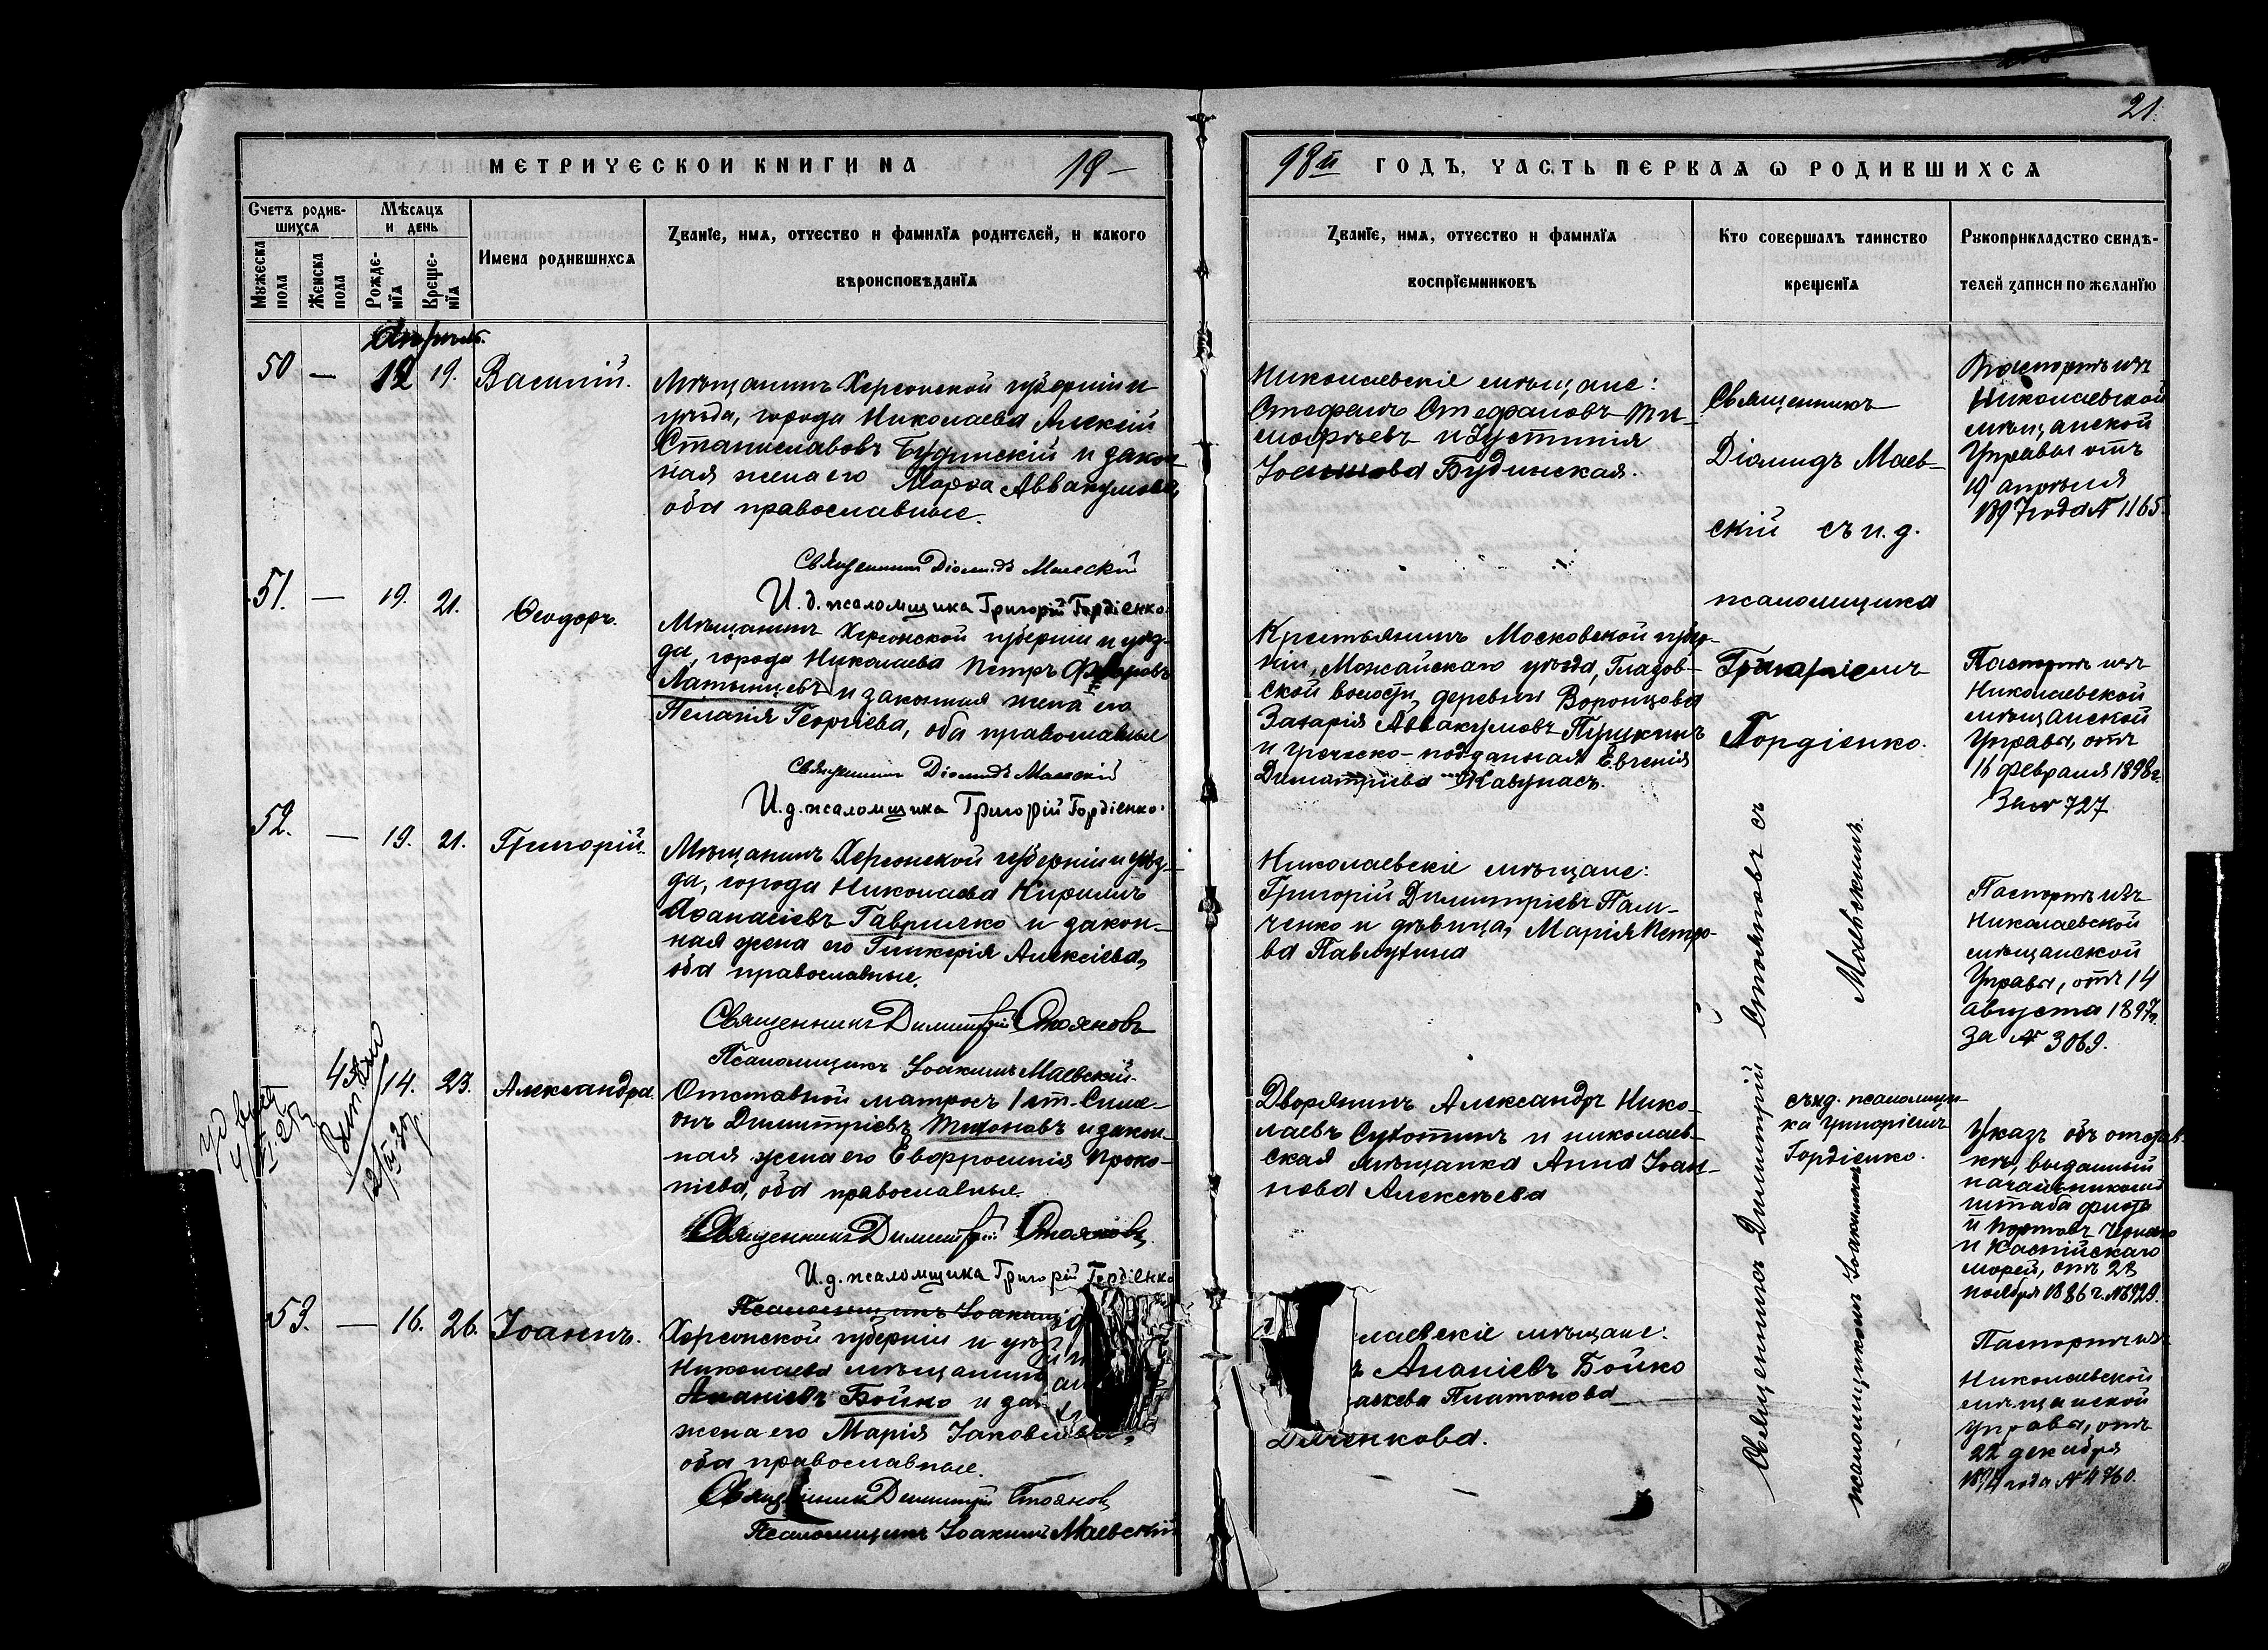 21.
МЕТРИЧЕСКОЙ КНИГИ НА 18—
98й ГОДЪ, ЧАСТЬ ПЕРВАЯ Ѡ РОДИВШИХСЯ
Счетъ родив-
шихся
Мѣсяцъ
и день
Мужеска
пола
Женска
пола
Рожде-
нїя
Креще-
нїя
Имена родившихся
Званїе, имя, отчество и фамилїя родителей, и какого
вѣроисповѣданїя
Званїе, имя, отчество и фамилїя
воспрїемниковъ
Кто совершалъ таинство
крещенїя
Рукоприкладство свидѣ-
телей записи по желанїю
Апрѣль.
50 — 12 19. Василій.
Мѣщанинъ Херсонской губерніи и
уѣзда, города Николаева Алексій
Станиславовъ Будинскій и закон-
ная жена его Марѳа Аввакумова,
оба православные.
Священникъ Діомидъ Маевскій
И. д. псаломщика Григорій Гордіенко.
Николаевскіе мѣщане:
Стефанъ Стефановъ Ти-
мофѣевъ и Іустинія
Будинская.
Священникъ
Діомидъ Маев-
скій съ и. д.
псаломщика
Григоріемъ
Гордіенко.
Паспортъ изъ
Николаевской
мѣщанской
Управы отъ
19 апрѣля
1897 года № 1165.
51. — 19. 21. Ѳеодоръ.
Мѣщанинъ Херсонской губерніи и уѣз-
да, города Николаева Петръ
Латынцевъ и законная жена его
Пелагія Георгіева, оба православные
Священникъ Діомидъ Маевскій
И. д. псаломщика Григорій Гордіенко.
Крестьянинъ Московской губер-
ніи, Можайскаго уѣзда, Глазов-
ской волости, деревни Воронцова
Захарія Аввакумовъ Пушкинъ
и греческо-подданная Евгенія
Димитріева
Паспортъ изъ
Николаевской
мѣщанской
Управы, отъ
16 февраля 1898 г.
За № 727
52. — 19. 21. Григорій.
Мѣщанинъ Херсонской губерніи и уѣз-
да, города Николаева Кириллъ
Аѳанасіевъ Гаврилко и закон-
ная жена его Гликерія Алексіева,
оба православные.
Священникъ Димитрій Стояновъ
Псаломщикъ Іоакимъ Маевскій.
Николаевскіе мѣщане:
Григорій Димитріевъ Пам-
ченко и дѣвица, Марія Петро-
ва Павлутина
Священникъ Димитрій Стояновъ съ
псаломщикомъ Іоакимомъ
Маевскимъ.
Паспортъ изъ
Николаевской
мѣщанской
Управы, отъ 14
августа 1897 г.
За № 3069.
14. 23. Александра.
Отставной матросъ 1 ст. Симе-
онъ Димитріевъ Тихоновъ и закон-
ная жена его Евфросинія Проко-
піева, оба православные.
Священникъ Димитрій Стояновъ
И. д. псаломщика Григорій Гордіенко
Псаломщикъ Іоакимъ
Дворянинъ Александръ Нико-
лаевъ Сухотинъ и николаев-
ская мѣщанка Анна Іоан-
нова Алексѣева
съ и. д. псаломщи-
ка Григоріемъ
Гордіенко.
Указъ объ отстав-
кѣ, выданный
начальникомъ
штаба флота
и портовъ Чернаго
и Каспійскаго
морей, отъ 23
ноября 1886 г. № 8929.
53. — 16. 26. Іоаннъ.
Херсонской губерніи и уѣз
Николаева мѣщанинъ
Ананіевъ Бойко и за
жена его Марія Іаковлева,
оба православные.
Священникъ Димитрій Стояновъ
Псаломщикъ Іоакимъ Маевскій
лаевскіе мѣщане:
ъ Ананіевъ Бойко
аскева Платонова
Дяченкова.
Паспортъ изъ
Николаевской
мѣщанской
управы, отъ
22 декабря
года № 4760.